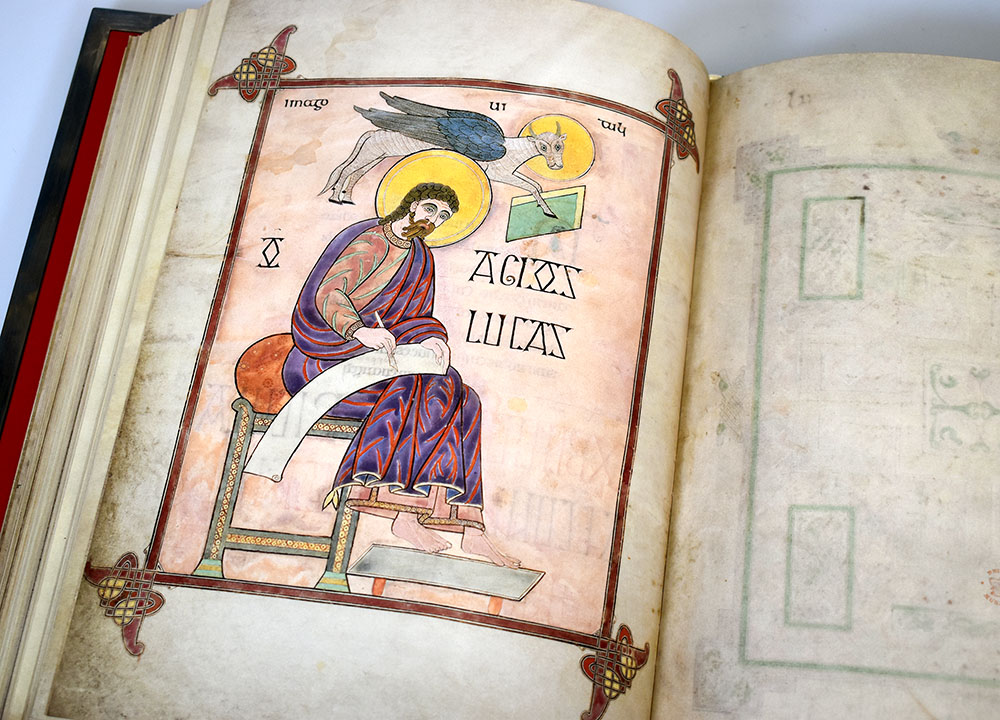 imago ui tuli
O AGIOS
LUCAS